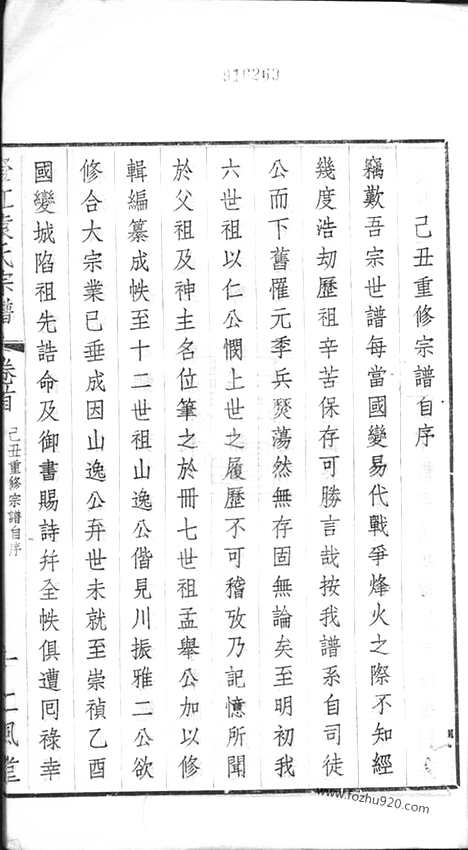 916269
己丑重修宗譜自序
竊歎吾宗世譜每當國變易代戰爭烽火之際不知經
幾度浩劫歷祖辛苦保存可勝言哉按我譜系自司徒
公而下舊罹元季兵燹蕩然無存固無論矣至明初我
六世祖以仁公憫上世之履歷不可稽攷乃記憶所聞
於父祖及神主名位筆之於冊七世祖孟舉公加以修
輯編纂成帙至十二世祖山逸公偕見川振雅二公欲
修合大宗業已垂成因山逸公弃世未就至崇禎乙酉
國變城陷祖先誥命及御書賜詩幷全帙俱遭囘祿幸
江袁氏宗譜
卷首
己丑重修宗譜自序
www.fozhu920.com